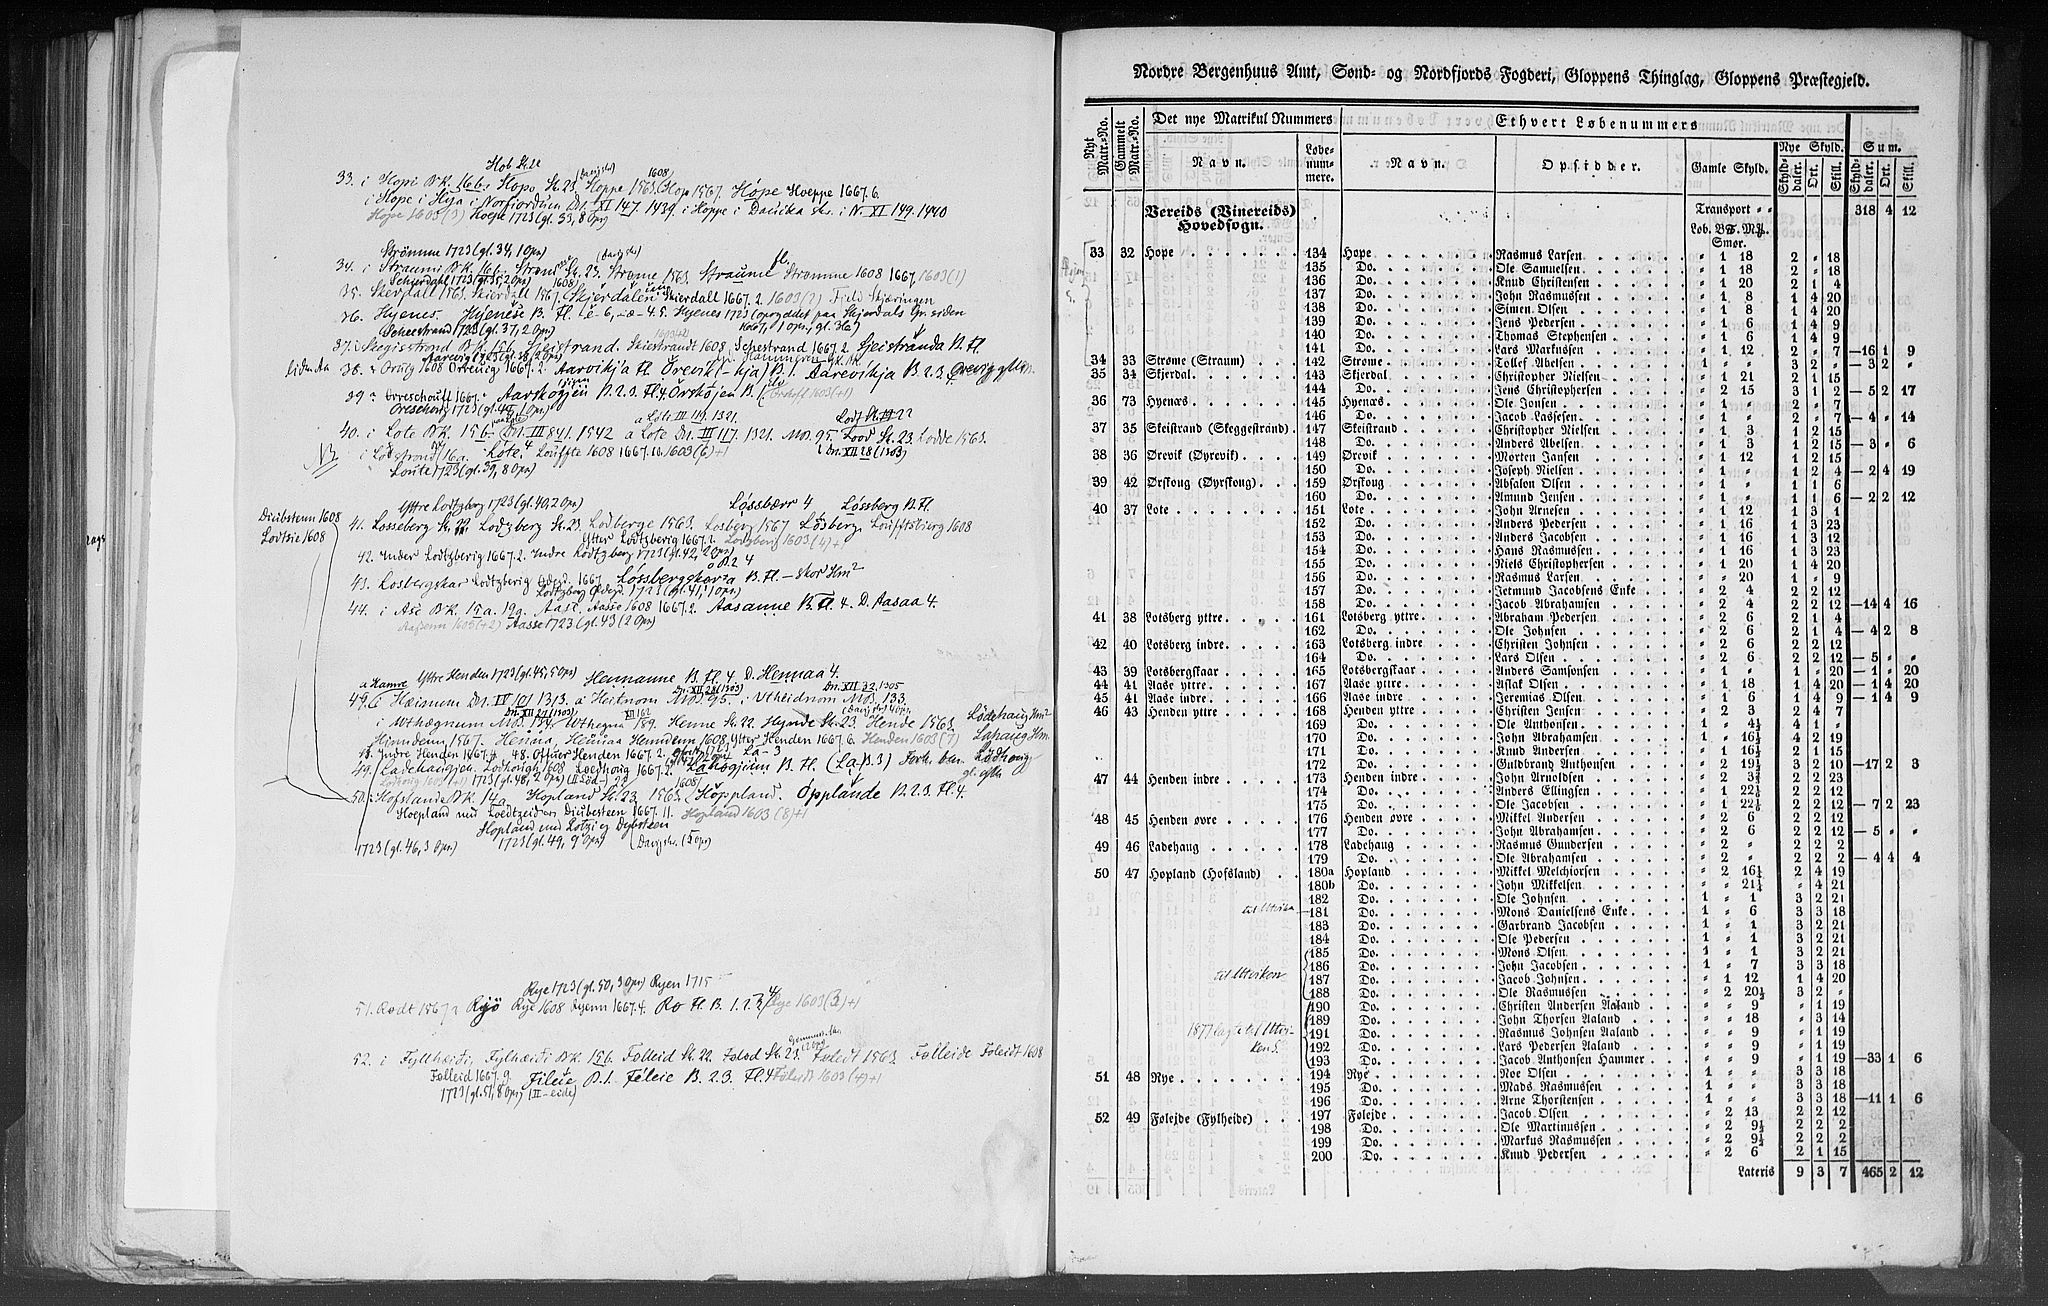 Hob Sk. 22
33. i Hopi BK. 16b. Hopo Sk. 23. Hoppe 1563. (Hop 1567. Hópe Hoeppe 1667. 6.
i Hope i Hyja i Norfiordum Dn. XI 147. 1439. i Hoppe i Dauika skr. i N. XI 149. 1440
Hope 1603 (3) Hoepe 1723 (gl. 33, 8 Opn)
Strømme 1723 (gl. 34, 1 Opn)
34. i Straumi BK. 16b. Sk. 23. Strøme 1563. Straume Strømme 1608 1667. 1603 (1)
Schierdahl 1723 (gl. 35, 2 Opn)
35. Skerdall 1563. Skierdall 1567. Skjerdalen Skierdall 1667. 2. 1603 (2)
36. Hjenes. Hyenes 1723 (opryddet paa Skjerdals Gr. siden
1667, 1 Opn, gl. 36)
Scheestrand 1723 (gl. 37, 2 Opn)
37. i Skeggisstrond BK. 15b. Skeistrand. Skiestrandt 1608. Schestrand 1667. 2. Sjeistranda B. Fl.
38. Aarvikja Fl. Örevik (-kja) B. 1. Aarevikja B. 2. 3.
39. Orreschoufft 1667. Aarskogjen B. 2. 3. Fl. 4. Örstöjen B. 1.
Oreschoug 1723
a Lote III 119. 1321.
40. i Lote BK. 15b. Dn. III 841. 1542 a Lote Dn. III 117. 1321. Mb. 95. Lood Sk. 23. Lodde 1563.
NB i Lodestrond 16a. Lote. 4 Louffte 1608 1667. 10. 1603 (6)+1
Dn. XII 28 (1303)
Loute 1723 (gl. 39, 8 Opn)
Yttre Lodtzberg 1723 (gl. 40, 2 Opn) Løssbærr 4 Løssberg B. Fl.
Diubsteenn 1608
Lodtzie 1608
41. Losseberg Sk. 22 Lodzberg Sk. 23. Lodberge 1563. Losberg 1567 Løsberg Loufftsbierg 1608
Ytter Lodtzberig 1667. 2. Lodzberg 1603 (4)+
42. Inder Lodtzberig 1667. 2. Indre Lodtzberg 1723 (gl. 42, 2 Opn)
43. Losbergskar Lodtzberig Øded. 1667. Løssbergskora B. Fl. – skor Hm2
Lodtzberg Øded. 1723 (gl. 41, 1 Opn)
44. i Ase BK. 15a. 19a. Aase. Aasse 1608 1667. 2. Aasanne B. Fl. 4. D. Aasaa 4.
Aassenn 1603 (+2) Aasse 1723 (gl. 43 (2 Opn)
Yttre Henden 1723 (gl. 45, 5 Opn) Hennanne B. Fl. 4 D. Hennaa 4.
i Hæisnum Dn. IV 101 1313. a Heitnom Mb. 95. i Vtheidnom Mb. 133.
i Wthægnum Henne Sk. 22. Hynde Sk. 23 Hende 1563. Lødehaug Hm2
Hinndenn 1567. Henaa, Hennaa Henndenn 1608. Ytter Henden 1667. 6. Henden 1603 (7) Lahaug Hm
Indre Henden 1667. 4. 48. Offuer Henden 1667. 2. La-3
49. Ladehaugjen Lodhough 1608 Loedhoug 1667. 2. Lahogjenn B. Fl. (La. B. 3) Forh. han Lødhoug
gl. efter
50. i Hofslande BK. 14a. Hopland Sk. 23 1563. Hoppland. Opplande B. 2. 3. Fl. 4.
Hoepland med Loedtzeid en Diubesteen 1667. 11. Hopland 1603 (8)+1
Hopland med Lotzi og Dybsteen
1723 (gl. 46, 3 Opn) 1723 (gl. 49, 9 Opn)
Rye 1723 (gl. 50, 3 Opn) Ryen 1715
51. Rødt 1567. Ryö Rye 1608 Ryenn 1667. 4. Ro Fl. B. 1. 2. 3 Rye 1603 (3)+1
52. i Fyllhæiði, Fylhæiði BK. 15b. Folleid Sk. 22. Føleidt 1563 Følleide Føleidt 1608
Følleid 1667. 9. Fileie B. 1. Feleie B. 2. 3. Fl. 4 Føleidt 1603 (4)+1
1723 (gl. 51, 8 Opn) (II – eide)
Nordre Bergenhuus Amt, Sønd- og Nordfjords Fogderi, Gloppens Thinglag, Gloppens Præstegjeld.
Nyt Matr.-No. Gammelt Matr.-No. Det nye Matrikul Nummers Ethvert Løbenummers
Navn. Løbenummere. Navn. Opsidder. Gamle Skyld. Nye Skyld. Sum.
Skylddaler. Ort. Skill. Skylddaler. Ort. Skill.
Vereids (Vinereids) Hovedsogn. Transport " " 318 4 12
Løb. B℔. Mk. Smør.
33 32 Hope 134 Hope Rasmus Larsen " 1 18 2 " 18
135 Do. Ole Samuelsen " 1 18 2 " 18
136 Do. Knud Christensen " 1 20 2 1 4
137 Do. John Rasmussen " 1 8 1 4 20
138 Do. Simen Olsen " 1 8 1 4 20
139 Do. Jens Pedersen " 1 6 1 4 9
140 Do. Thomas Stephensen " 1 6 1 4 9
141 Do. Lars Markussen " 1 12 2 " 7 —16 1 9
34 33 Strøme (Straum) 142 Strøme Tollef Abelsen 1 " " 3 2 " — 3 2 "
35 34 Skjerdal 143 Skjerdal Christopher Nielsen " 1 21 2 1 15
144 Do. Jens Christophersen " 2 15 3 1 2 — 5 2 17
36 73 Hyenæs 145 Hyenæs Ole Jonsen " 1 " 2 " 7
146 Do. Jacob Lassesen " 1 " 2 " 7 — 4 " 14
37 35 Skeistrand (Skeggestrand) 147 Skeistrand Christopher Nielsen " 1 3 1 2 15
148 Do. Anders Abelsen " 1 3 1 2 15 — 3 " 6
38 36 Ørevik (Øyrevik) 149 Ørevik Morten Jansen " 1 12 1 2 15
150 Do. Joseph Nielsen " 1 " 1 2 4 — 2 4 19
39 42 Ørstoug (Øyrstoug) 159 Ørstoug Absalon Olsen " 1 " 1 1 6
160 Do. Amund Jensen " 1 " 1 1 6 — 2 2 12
40 37 Lote 151 Lote John Arnesen " 1 12 1 3 1
152 Do. Anders Pedersen " 1 16 1 3 23
153 Do. Anders Jacobsen " 1 16 1 3 12
154 Do. Hans Rasmussen " 1 16 1 3 23
155 Do. Niels Christophersen " 1 20 1 4 20
156 Do. Rasmus Larsen " " 20 1 " 9
157 Do. Jetmund Jacobsens Enke " 2 4 2 2 12
158 Do. Jacob Abrahamsen " 2 4 2 2 12 —14 4 16
41 38 Lotsberg yttre 161 Lotsberg yttre Abraham Pedersen " 2 6 2 1 4
162 Do. Ole Johnsen " 2 6 2 1 4 — 4 2 8
42 40 Lotsberg indre 163 Lotsberg indre Christen Johnsen " 2 6 2 2 12
164 Do. Lars Olsen " 2 6 2 2 12 — 5 " "
43 39 Lotsbergskaar 165 Lotsbergskaar Anders Samsonsen " 1 " 1 " 20 — 1 " 20
44 41 Aase yttre 167 Aase yttre Aslak Olsen " 1 18 1 4 20 — 1 4 20
45 41 Aase indre 166 Aase indre Jeremias Olsen " 1 6 1 4 9 — 1 4 9
46 43 Henden yttre 168 Henden yttre Christen Jensen " 2 3 2 4 7
169 Do. Ole Anthonsen 1 " 4½ 4 1 "
170 Do. John Abrahamsen 1 " 16½ 4 2 19
171 Do. Knud Andersen " 1 16½ 2 1 15
172 Do. Guldbrand Anthonsen " 2 19½ 3 2 10 —17 2 3
47 44 Henden indre 173 Henden indre John Arnoldsen " 2 3¾ 2 2 23
174 Do. Anders Ellingsen " 1 22⅛ 2 2 12
175 Do. Ole Jacobsen " 1 22⅛ 2 2 12 — 7 2 23
48 45 Henden øvre 176 Henden øvre Mikkel Andersen " 2 6 2 2 12
177 Do. John Abrahamsen " 2 6 2 2 12 — 5 " "
49 46 Ladehaug 178 Ladehaug Rasmus Gundersen " 2 " 2 2 2
179 Do. Ole Abrahamsen " 2 " 2 2 2 — 4 4 4
50 47 Hopland (Hofsland) 180a Hopland Mikkel Melchiorsen " 2 16½ 2 4 19
180b Do. John Mikkelsen " " 21¼ " 4 21
182 Do. Ole Johnsen 1 " 1 3 2 21
til Utvika 181 Do. Mons Danielsens Enke 1 " 6 3 3 18
183 Do. Garbrand Jacobsen 1 " 1 3 2 21
184 Do. Ole Pedersen 1 " 1 3 2 21
185 Do. Mons Olsen 1 " 1 3 2 21
til Utviken 186 Do. John Jacobsen 1 " 7 3 3 18
187 Do. Jacob Johnsen " 1 12 1 4 20
188 Do. Ole Rasmussen " 2 20½ 3 2 "
190 Do. Christen Andersen Aaland " " 9 " 1 19
189 Do. John Thorsen Aaland " " 18 " 3 14
1877 lagt til Utvikens. 191 Do. Rasmus Johnsen Aaland " " 9 " 1 19
192 Do. Lars Pedersen Aaland " " 9 " 1 19
193 Do. Jacob Anthonsen Hammer " " 9 " 1 19 —33 1 6
51 48 Rye 194 Rye Noe Olsen 1 " " 3 3 18
195 Do. Mads Rasmussen 1 " " 3 3 18
196 Do. Arne Thorstensen 1 " " 3 3 18 —11 1 6
52 49 Føleide (Fylheide) 197 Føleide Jacob Olsen " 2 13 2 2 12
198 Do. Ole Martinussen " 2 9½ 2 2 2
199 Do. Markus Rasmussen " 2 9½ 2 2 2
200 Do. Knud Pedersen " 2 6 2 1 15
Lateris 9 3 7 465 2 12